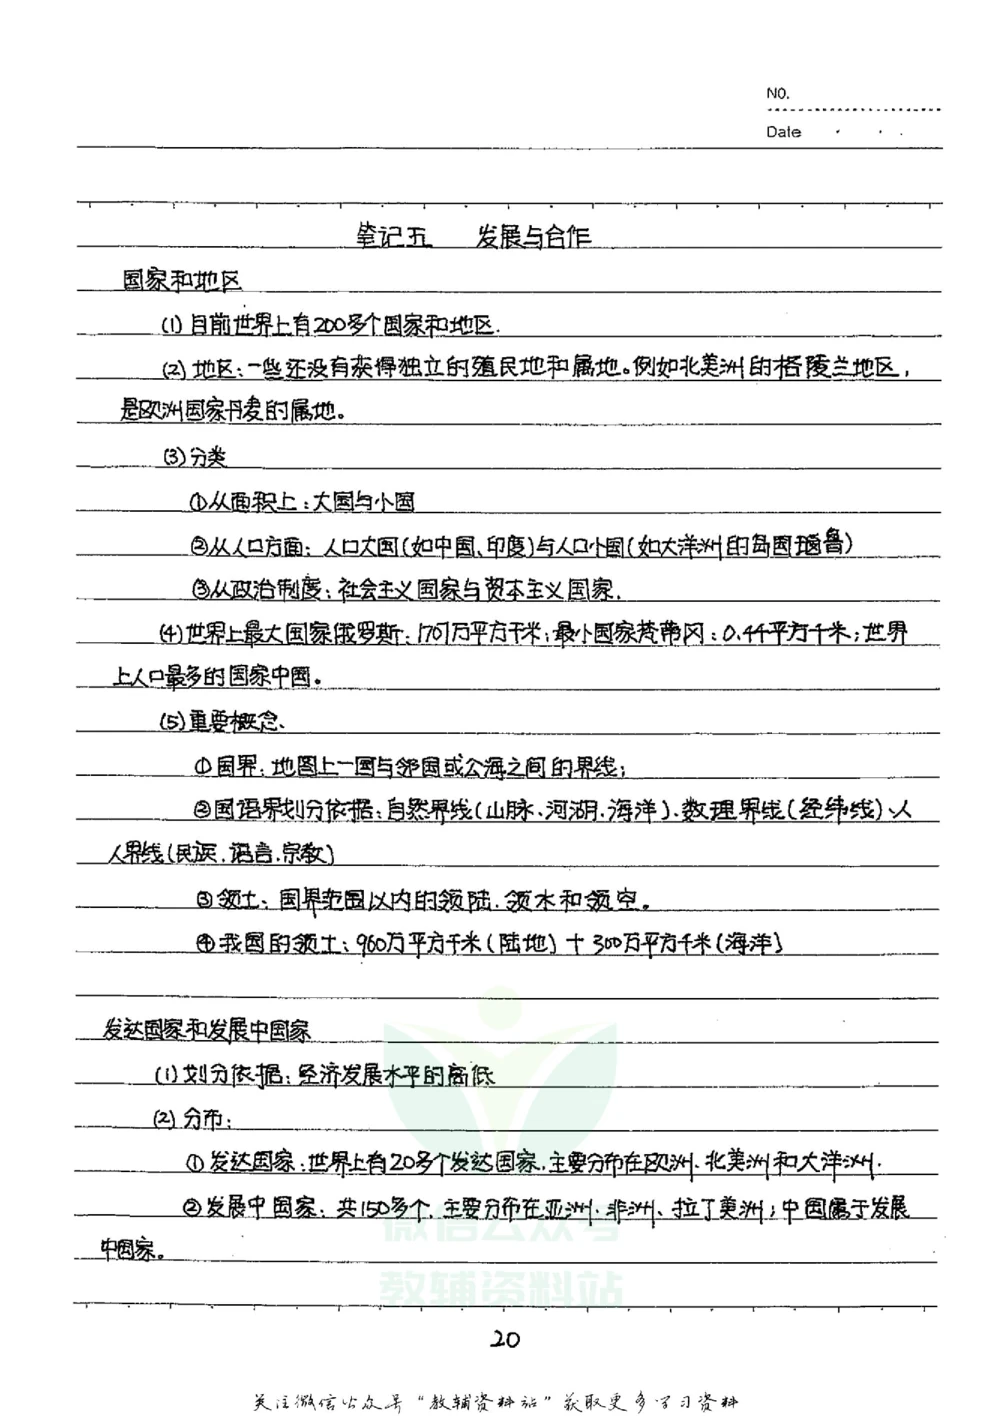 NO.
Date
笔记五 发展与合作
国家和地区
(1) 目前世界上有200多个国家和地区.
(2) 地区:一些还没有获得独立的殖民地和属地。例如北美洲的格陵兰地区,
是欧洲国家丹麦的属地。
(3) 分类
①从面积上:大国与小国
②从人口方面:人口大国(如中国、印度)与人口小国(如大洋洲的岛国瑙鲁)
③从政治制度:社会主义国家与资本主义国家.
(4)世界上最大国家俄罗斯:1707万平方千米;最小国家梵蒂冈:0.44平方千米;世界
上人口最多的国家中国。
(5)重要概念、
①国界:地图上一国与邻国或公海之间的界线;
②国语界划分依据:自然界线(山脉、河湖.海洋)、数理界线(经纬线)、人
人界线(民族.语言.宗教)
③领土:国界范围以内的领陆.领水和领空。
④我国的领土:960万平方千米(陆地)+300万平方千米(海洋)
发达国家和发展中国家
(1)划分依据:经济发展水平的高低
(2)分布:
①发达国家:世界上有20多个发达国家.主要分布在欧洲、北美洲和大洋洲.
②发展中国家:共150多个.主要分布在亚洲、非洲、拉丁美洲;中国属于发展
中国家。
微信公众号
教辅资料站
20
关注微信公众号“教辅资料站”获取更多学习资料